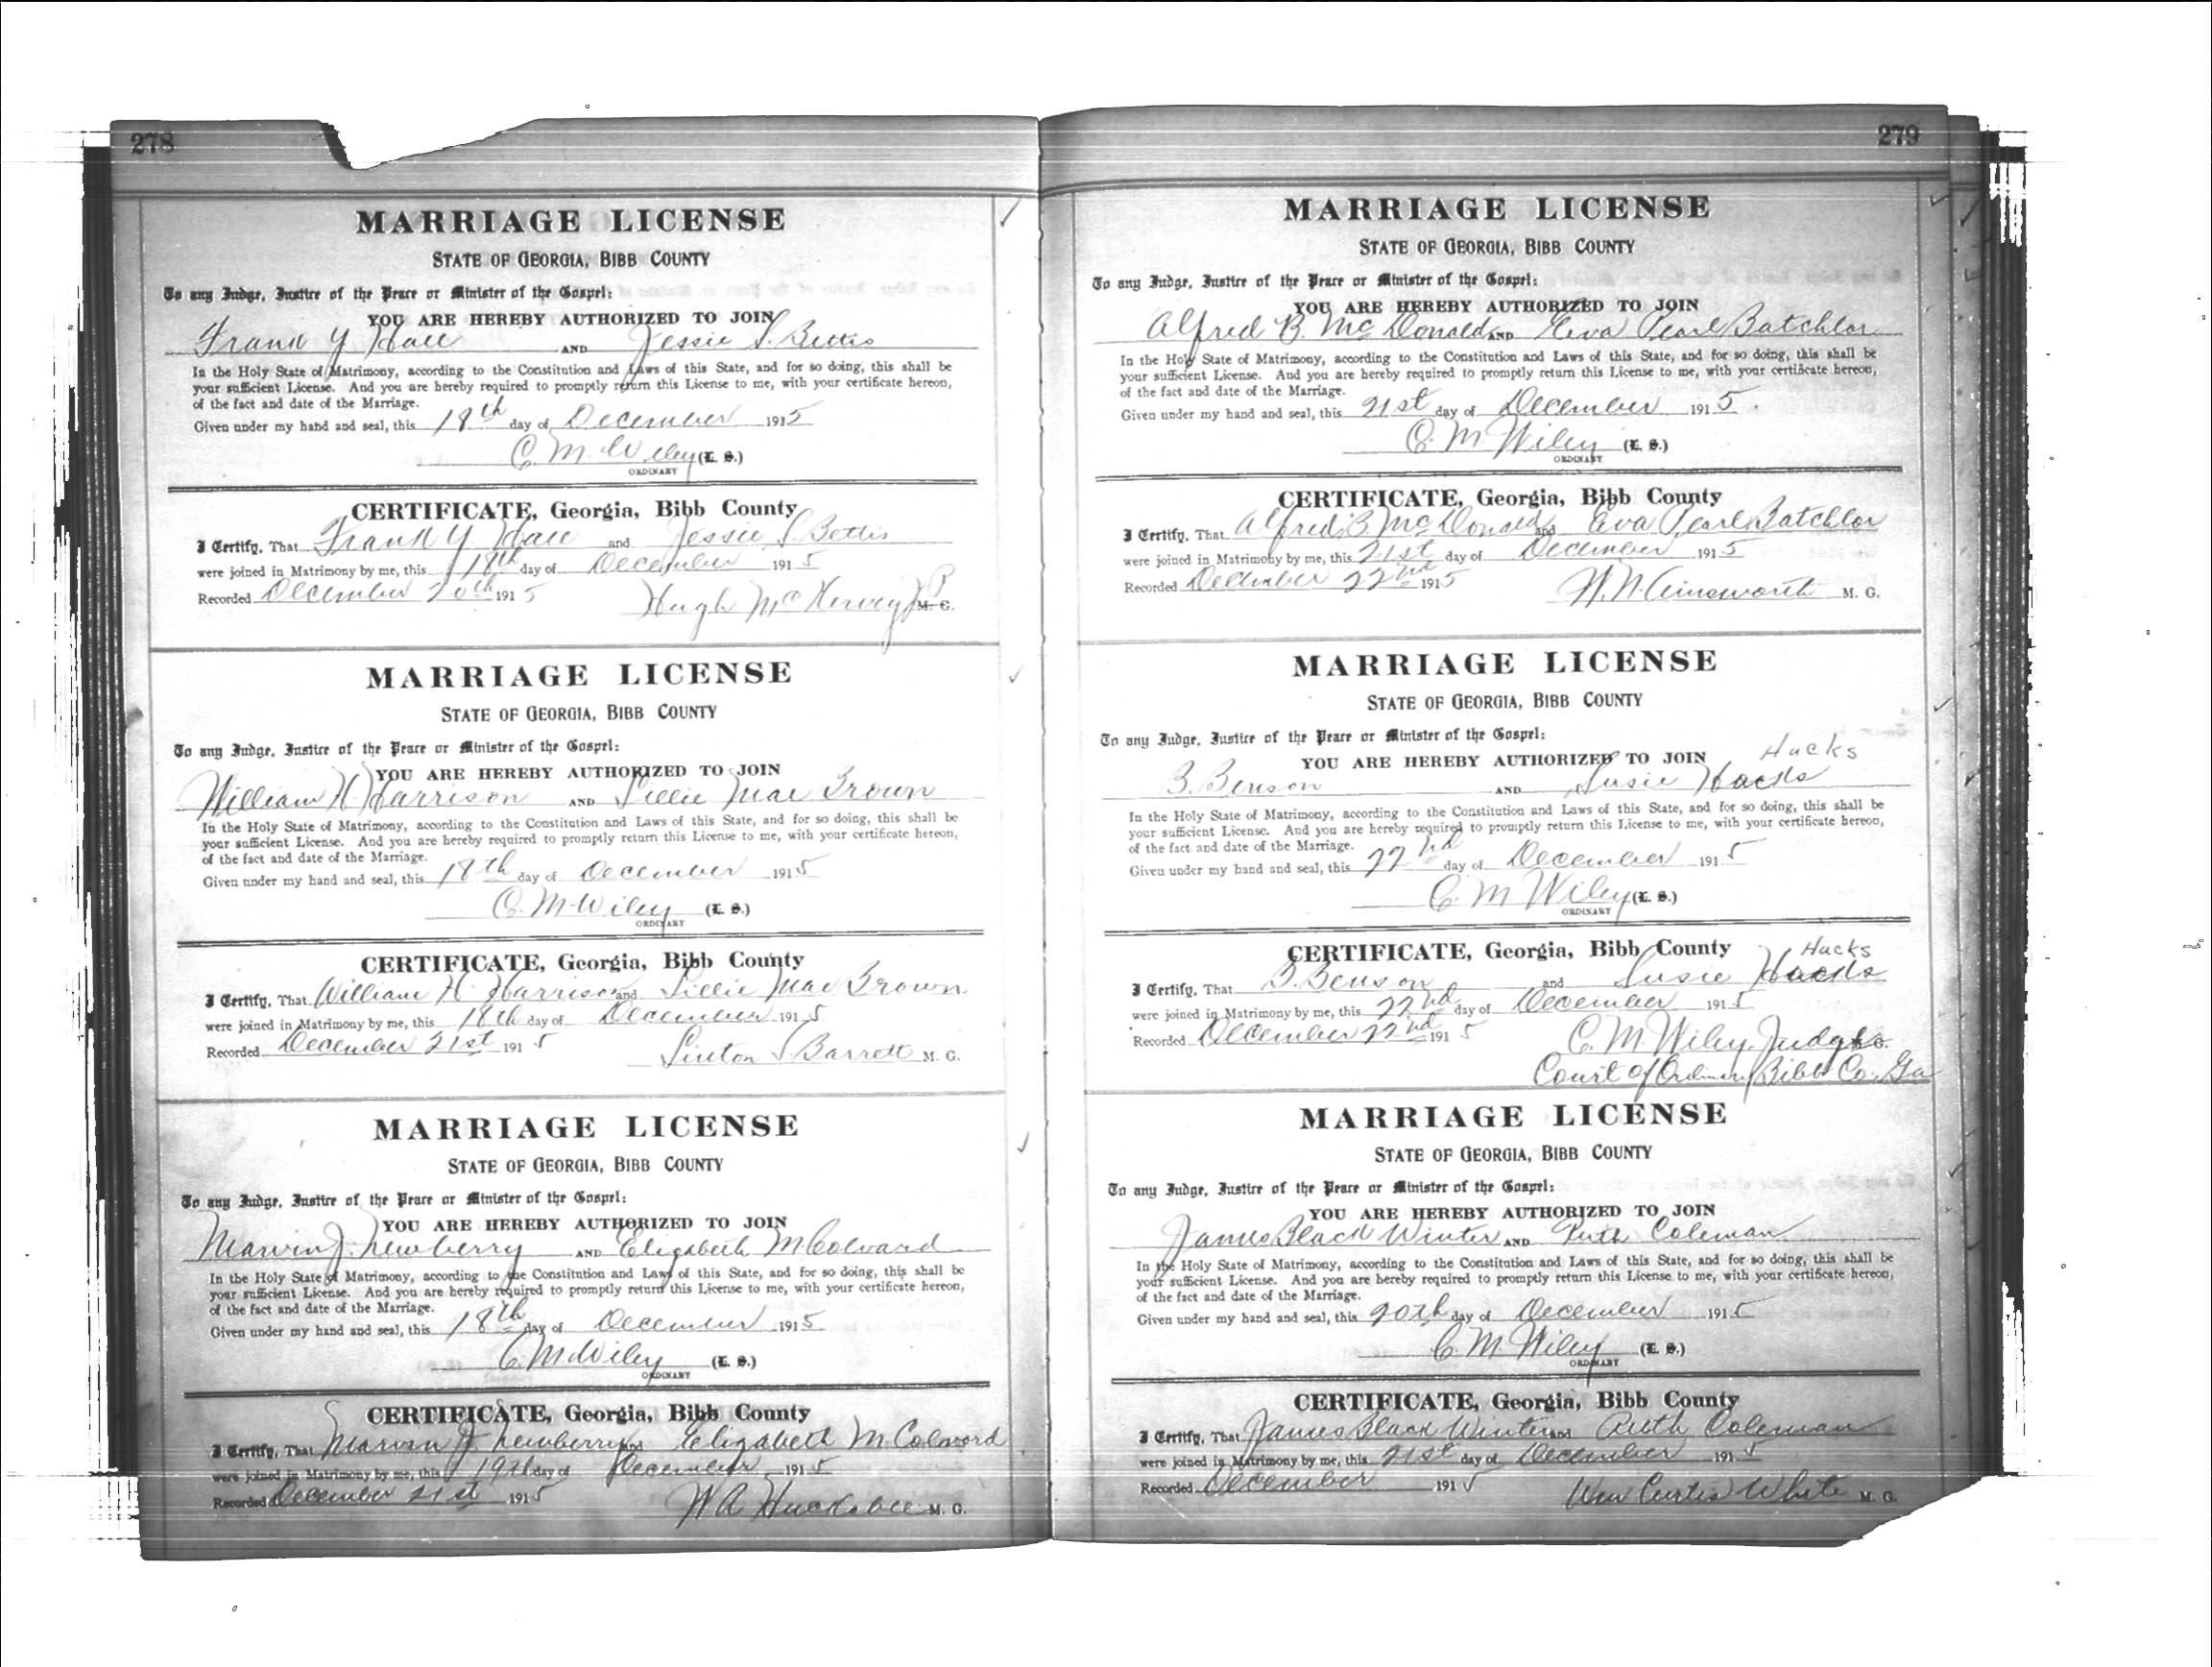 278
MARRIAGE LICENSE
STATE OF GEORGIA, BIBB COUNTY
To any Judge, Justice of the Peace or Minister of the Gospel:
YOU ARE HEREBY AUTHORIZED TO JOIN
Frank Y Hall AND Jessie S. Bettis
In the Holy State of Matrimony, according to the Constitution and Laws of this State, and for so doing, this shall be
your sufficient License. And you are hereby required to promptly return this License to me, with your certificate hereon,
of the fact and date of the Marriage.
Given under my hand and seal, this 18th day of December 1915
C. M. Wiley (L. S.)
ORDINARY
CERTIFICATE, Georgia, Bibb County
I Certify, That Frank Y Hall and Jessie S Bettis
were joined in Matrimony by me, this 18th day of December 1915
Recorded December 20th 1915 Hugh McKervey JP M. G.
MARRIAGE LICENSE
STATE OF GEORGIA, BIBB COUNTY
To any Judge, Justice of the Peace or Minister of the Gospel:
YOU ARE HEREBY AUTHORIZED TO JOIN
William H Harrison AND Lillie Mae Brown
In the Holy State of Matrimony, according to the Constitution and Laws of this State, and for so doing, this shall be
your sufficient License. And you are hereby required to promptly return this License to me, with your certificate hereon,
of the fact and date of the Marriage.
Given under my hand and seal, this 18th day of December 1915
C. M. Wiley (L. S.)
ORDINARY
CERTIFICATE, Georgia, Bibb County
I Certify, That William H Harrison and Lillie Mae Brown
were joined in Matrimony by me, this 18th day of December 1915
Recorded December 21st 1915 Linton S Barrett M. G.
MARRIAGE LICENSE
STATE OF GEORGIA, BIBB COUNTY
To any Judge, Justice of the Peace or Minister of the Gospel:
YOU ARE HEREBY AUTHORIZED TO JOIN
Marvin J. Newberry AND Elizabeth M Colvard
In the Holy State of Matrimony, according to the Constitution and Laws of this State, and for so doing, this shall be
your sufficient License. And you are hereby required to promptly return this License to me, with your certificate hereon,
of the fact and date of the Marriage.
Given under my hand and seal, this 18th day of December 1915
C. M. Wiley (L. S.)
ORDINARY
CERTIFICATE, Georgia, Bibb County
I Certify, That Marvin J. Newberry and Elizabeth M Colvord
were joined in Matrimony by me, this 19th day of December 1915
Recorded December 21st 1915 W A Huckabee M. G.
279
MARRIAGE LICENSE
STATE OF GEORGIA, BIBB COUNTY
To any Judge, Justice of the Peace or Minister of the Gospel:
YOU ARE HEREBY AUTHORIZED TO JOIN
Alfred B. McDonald AND Eva Pearl Batchlor
In the Holy State of Matrimony, according to the Constitution and Laws of this State, and for so doing, this shall be
your sufficient License. And you are hereby required to promptly return this License to me, with your certificate hereon,
of the fact and date of the Marriage.
Given under my hand and seal, this 21st day of December 1915.
C. M. Wiley (L. S.)
ORDINARY
CERTIFICATE, Georgia, Bibb County
I Certify, That Alfred B. McDonald and Eva Pearl Batchlor
were joined in Matrimony by me, this 21st day of December 1915
Recorded December 22nd 1915 W. N. Ainsworth M. G.
MARRIAGE LICENSE
STATE OF GEORGIA, BIBB COUNTY
To any Judge, Justice of the Peace or Minister of the Gospel:
YOU ARE HEREBY AUTHORIZED TO JOIN Hucks
B. Benson AND Susie Hucks
In the Holy State of Matrimony, according to the Constitution and Laws of this State, and for so doing, this shall be
your sufficient License. And you are hereby required to promptly return this License to me, with your certificate hereon,
of the fact and date of the Marriage.
Given under my hand and seal, this 22nd day of December 1915
C. M Wiley (L. S.)
ORDINARY
CERTIFICATE, Georgia, Bibb County Hucks
I Certify, That B. Benson and Susie Hucks
were joined in Matrimony by me, this 22nd day of December 1915
Recorded December 22nd 1915 C. M. Wiley, Judge
Court of Ordinary Bibb Co. Ga
MARRIAGE LICENSE
STATE OF GEORGIA, BIBB COUNTY
To any Judge, Justice of the Peace or Minister of the Gospel:
YOU ARE HEREBY AUTHORIZED TO JOIN
James Black Winter AND Ruth Coleman
In the Holy State of Matrimony, according to the Constitution and Laws of this State, and for so doing, this shall be
your sufficient License. And you are hereby required to promptly return this License to me, with your certificate hereon,
of the fact and date of the Marriage.
Given under my hand and seal, this 20th day of December 1915
C. M. Wiley (L. S.)
ORDINARY
CERTIFICATE, Georgia, Bibb County
I Certify, That James Black Winter and Ruth Coleman
were joined in Matrimony by me, this 21st day of December 1915
Recorded December 1915 Wm Curtis White M. G.